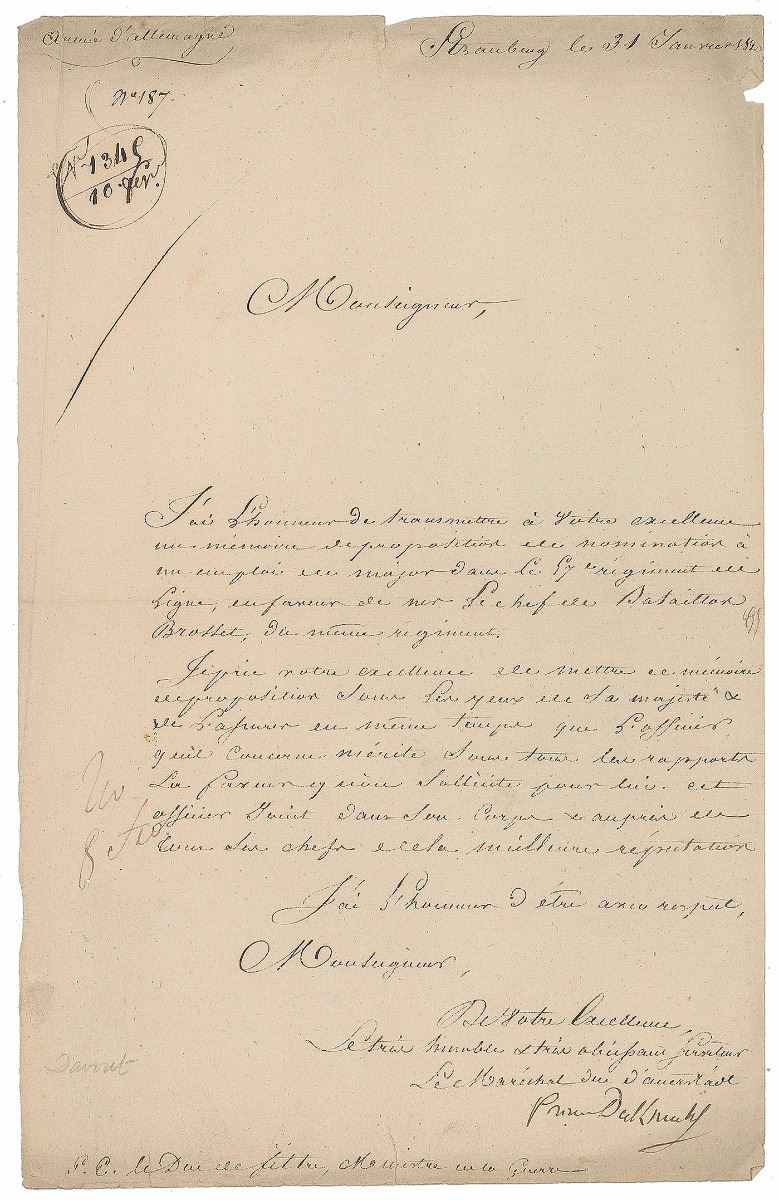 Armée d'allemagne
Straubing le 31 Janvier
N° 187.
N° 1345
10 fév.
Monseigneur,
J'ai L'honneur de transmettre à Votre excellence
un mémoire de proposition de nomination à
un emploi de major dans le 57e régiment de
Ligne, en faveur de mr Le chef de Bataillon
Brosset, du même régiment.
Je prie votre excellence de mettre ce mémoire
de proposition sous Les yeux de Sa majesté &
de L'assurer en même temps que L'officier
qu'il concerne mérite sous tous les rapports
La faveur qu'on sollicite pour lui. cet
officier jouit dans son Corps & auprès de
tous ses chefs de la meilleure réputation
J'ai L'honneur d'être avec respect,
Monseigneur,
De Votre Excellence,
Le très humble & très obéissant Serviteur
Le Maréchal duc d'auerstädt
Prince D'eckmuhl
Davout
S. E. le Duc de feltre, Ministre de la Guerre